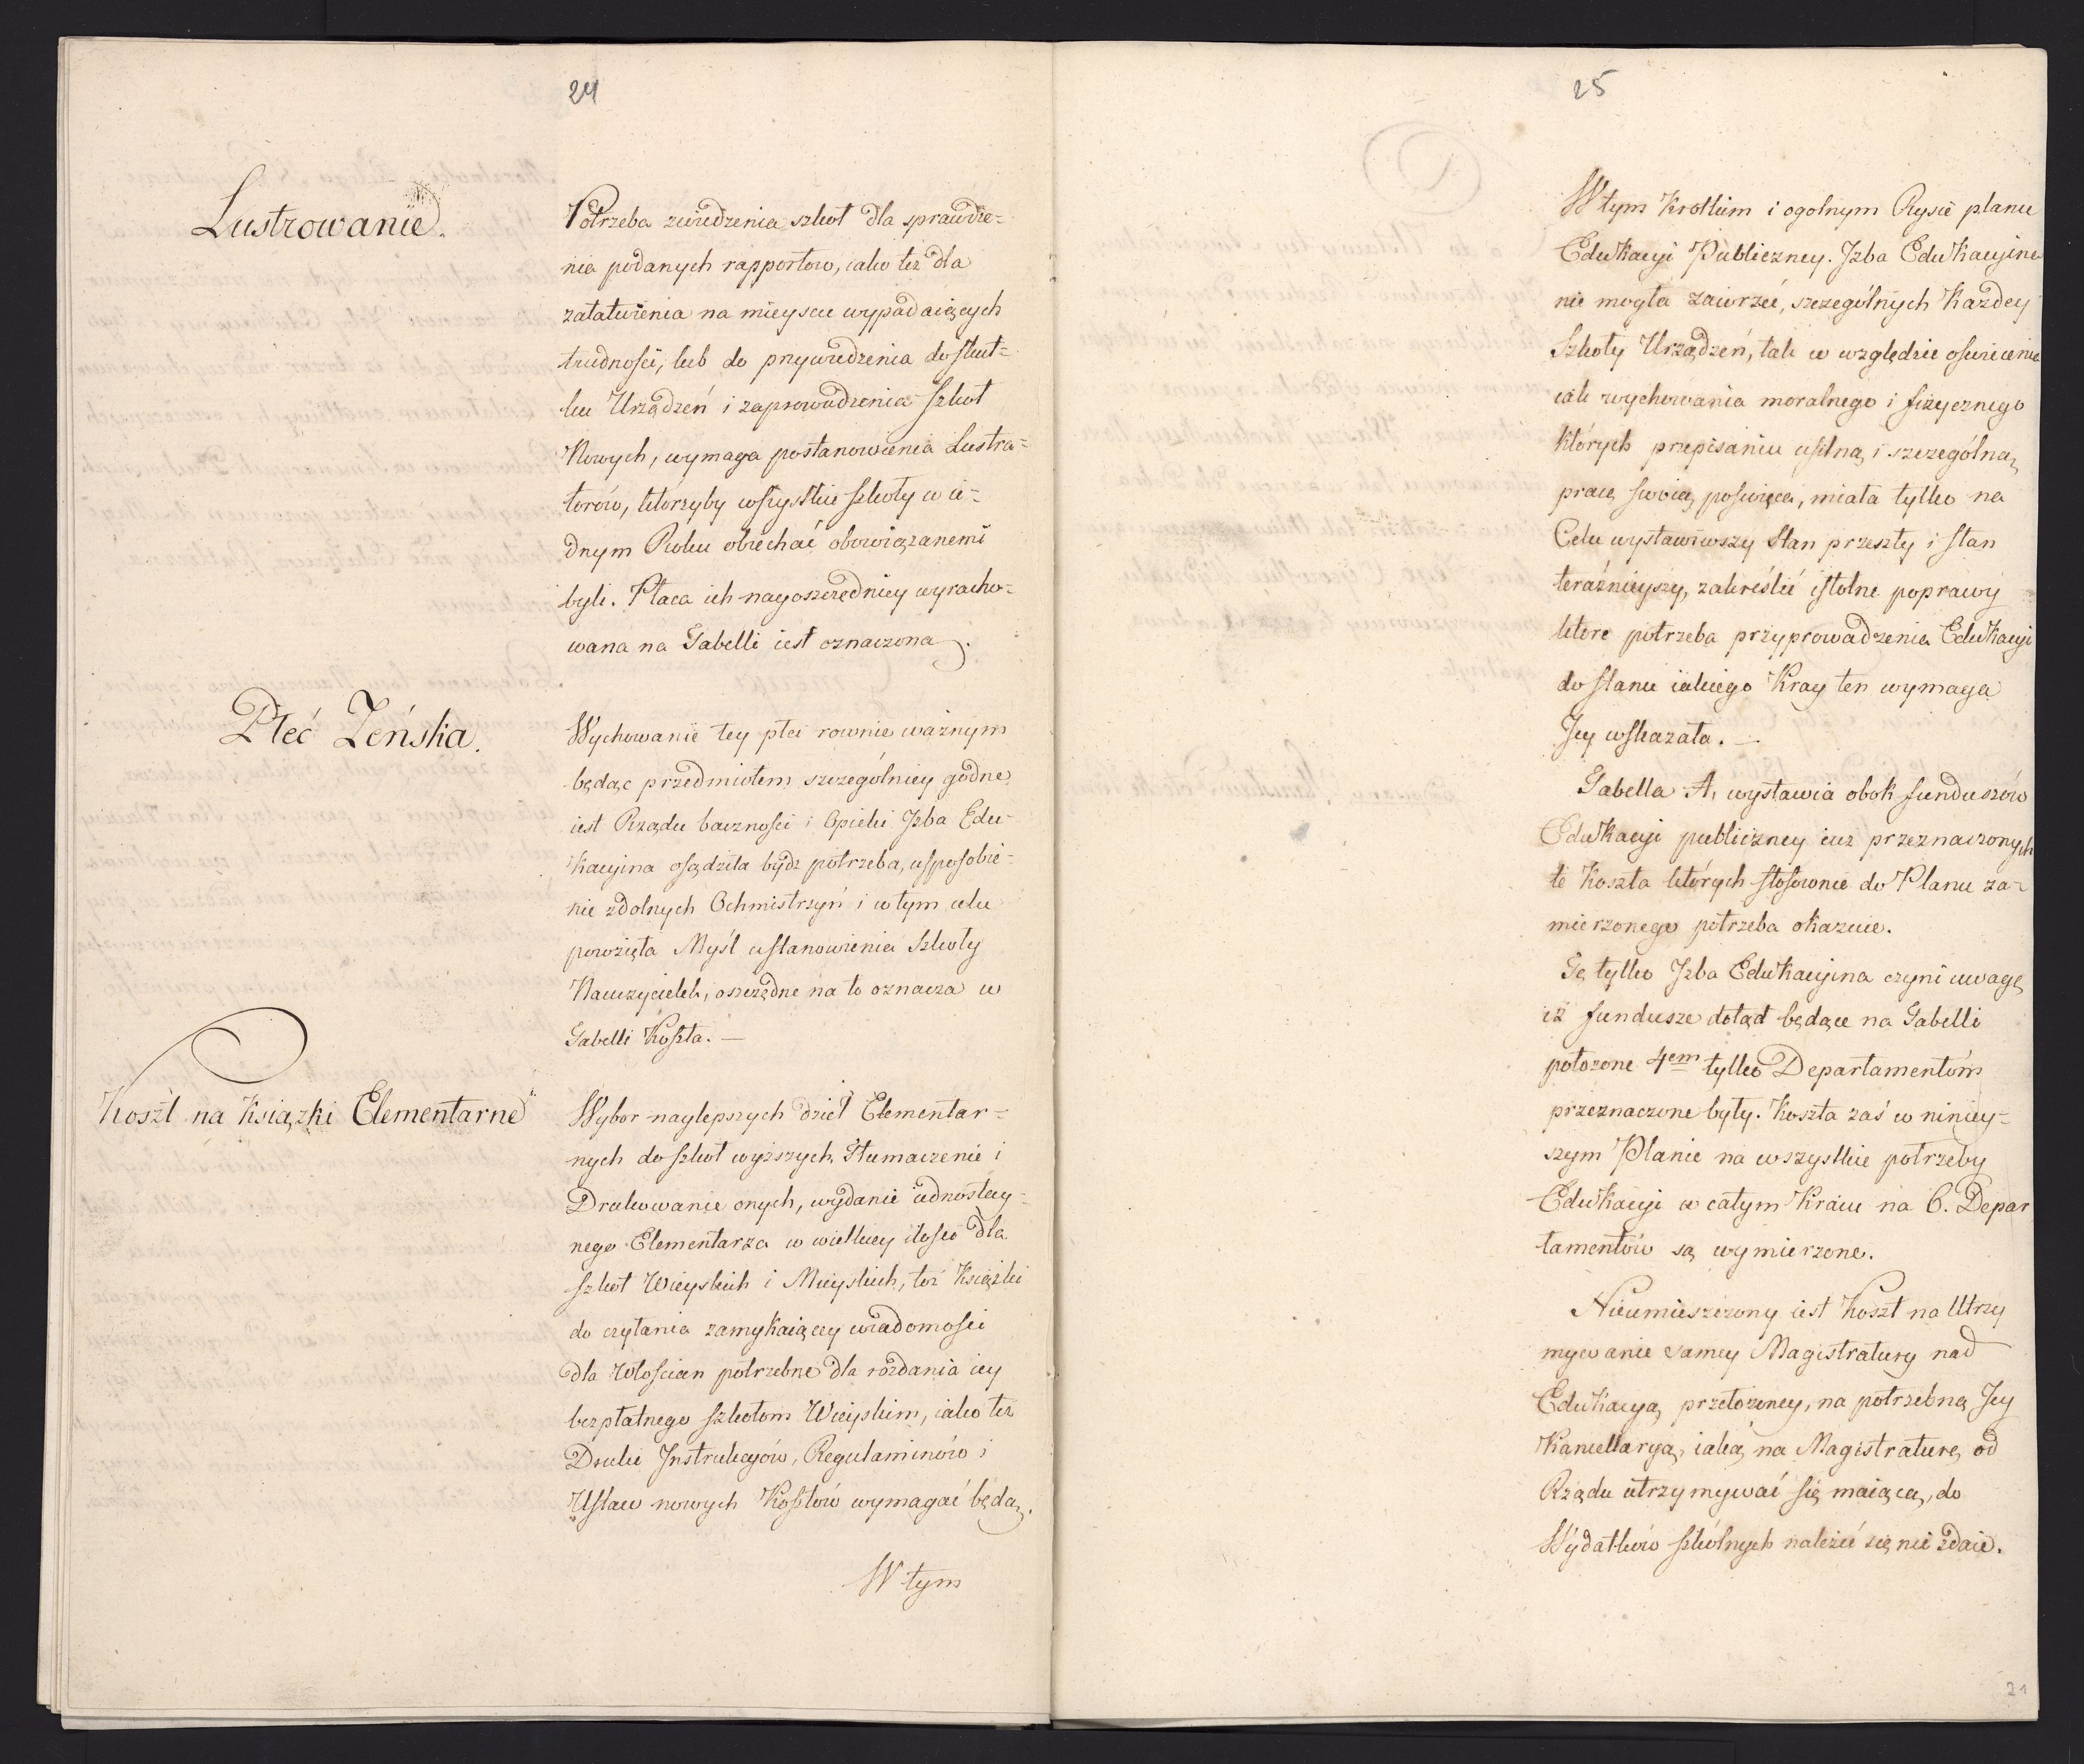 24
Lustrowanie.
Potrzeba zwiedzenia szkoł dla sprawdze=
nia podanych rapportow, iako też dla
załatwienia na mieyscu wypadaiących
trudności, lub do przywiedzenia do skut=
ku Urządzeń i zaprowadzenia Szkoł
Nowych, wymaga postanowienia Lustra=
torów, którzyby wszystkie szkoły w ie=
dnym Roku obiechać obowiązanemi
byli. Płaca ich nayoszczędniey wyracho=
wana na Tabelli iest oznaczona.
Płeć Żeńska.
Wychowanie tey płci rownie ważnym
będąc przedmiotem szczególniey godne
iest Rządu baczności i Opieki Izba Edu-
kacyina osądziła bydź potrzeba, usposobie=
nie zdolnych Ochmistrzyń i w tym celu
powzięła Myśl ustanowienia Szkoły
Nauczycielek, oszczędne na to oznacza w
Tabelli Koszta. —
Koszt na Książki Elementarne
Wybor naylepszych dzieł Elementar=
nych do szkoł wyższych, Tłumaczenie i
Drukowanie onych, wydanie iednostay=
nego Elementarza w wielkiey ilości dla
szkoł Wieyskich i Mieyskich, toż Książki
do czytania zamykaiącey wiadomości
dla Włościan potrzebne dla rozdania iey
bezpłatnego szkołom Wieyskim, iako też
Druki Instrukcyów, Regulaminów i
Ustaw nowych Kosztów wymagać będą.
W tym
25
W tym Krotkim i ogolnym Rysie planu
Edukacyi Publiczney. Izba Edukacyina
nie mogła zawrzeć, szczególnych Każdey
Szkoły Urządzeń, tak w względzie oświecenia
iak wychowania moralnego i fizycznego
których przepisaniu usilną i szczególną
pracę swoią poświęca, miała tylko na
Celu wystawiwszy stan przeszły i stan
teraźnieyszy, zakreślić istotne poprawy
które potrzeba przyprowadzenia Edukacyi
do stanu iakiego Kray ten wymaga
Jey wskazała. —
Tabella A, wystawia obok funduszów
Edukacyi publiczney iuż przeznaczonych
te Koszta których stosownie do Planu za=
mierzonego potrzeba okazuie.
Tę tylko Izba Edukacyina czyni uwagę
iż fundusze dotąd będące na Tabelli
położone 4em tylko Departamentóm
przeznaczone były. Koszta zaś w niniey=
szym Planie na wszystkie potrzeby
Edukacyi w całym Kraiu na 6. Depar
tamentów są wymierzone.
Nieumieszczony iest Koszt na Utrzy
mywanie samey Magistratury nad
Edukacyą przełożoney, na potrzebną Jey
Kancellaryą, iaką na Magistraturę od
Rządu utrzymywać się maiącą, do
Wydatków szkólnych należeć się nie zdaie.
21